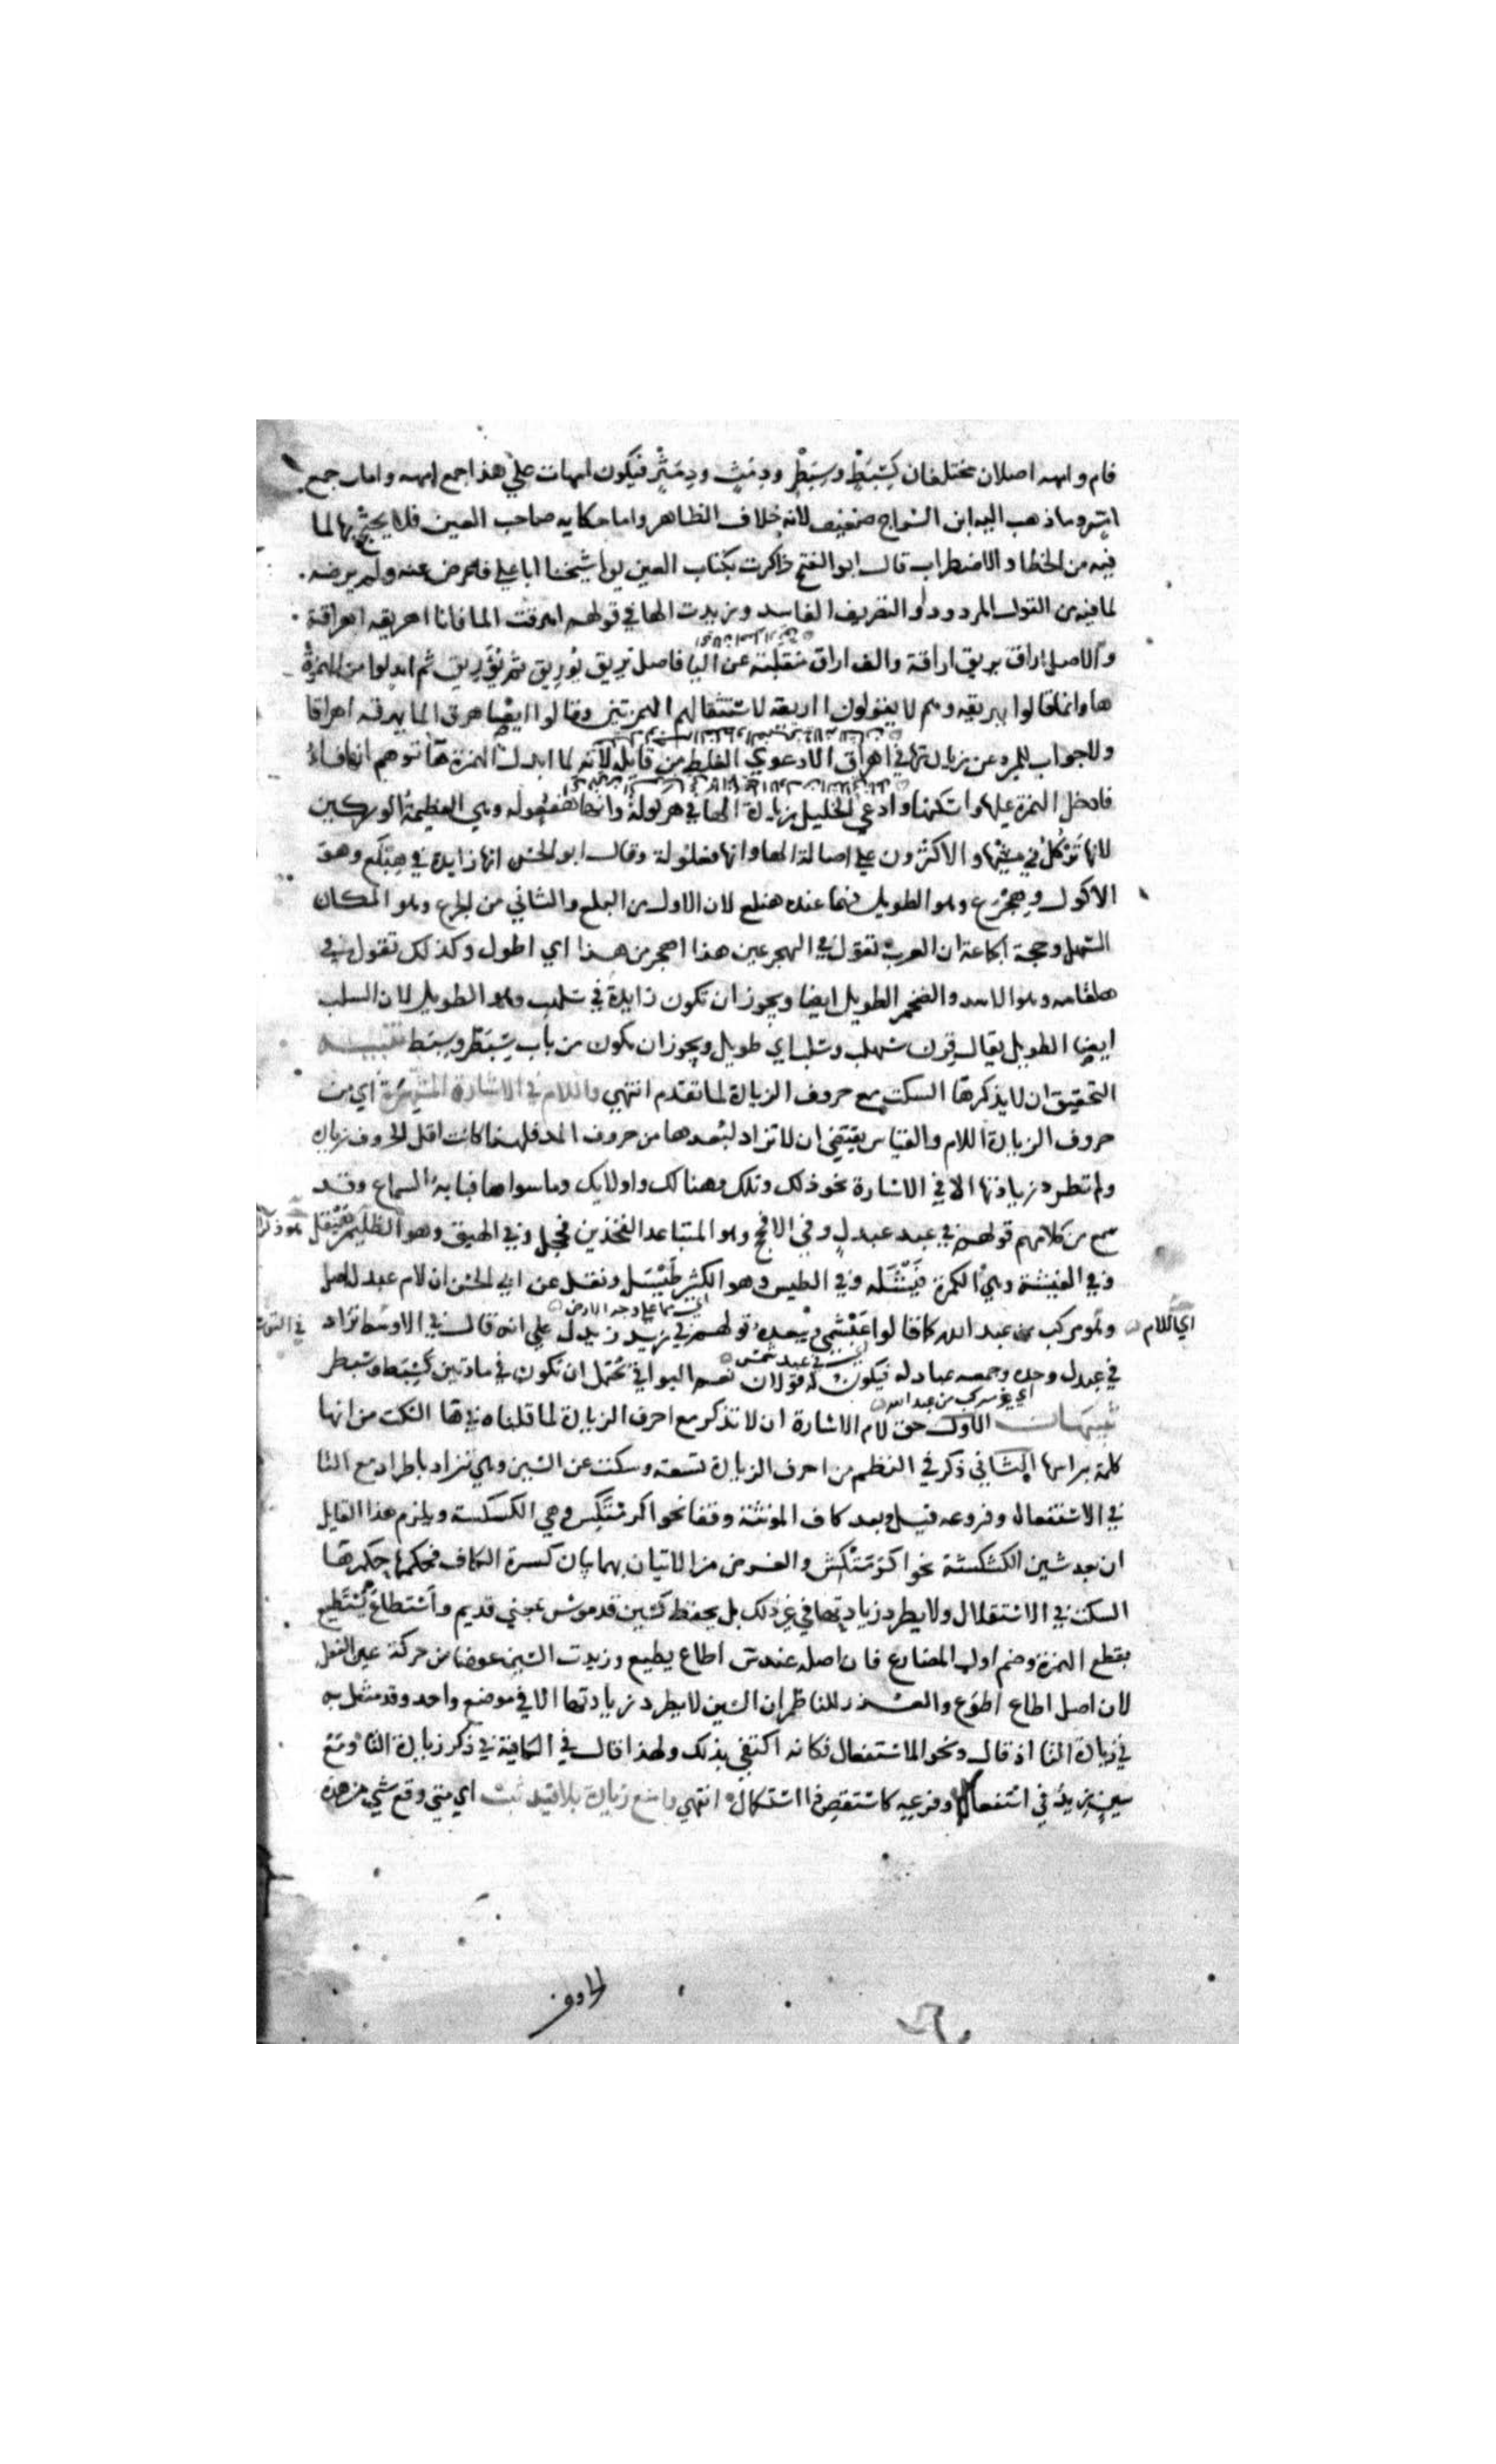 فام وامهه اصلان مختلفان كسبط وسبطر ودمث ودمثر فيكون امهات علي هذا جمع امهه وامات جمع
ام وما ذهب اليه ابن السراج ضعيف لانه خلاف الظاهر واما حكايه صاحب العين فلا يحتج بها لما
فيه من الخطا والاضطراب قال ابو الفتح ذاكرت بكتاب العين يوما شيخنا ابا علي فاعرض عنه ولم يرضه
لما فيه من القول المردود والتصريف الفاسد وزيدت الها في قولهم اهرقت الما فانا اهريقه اهراقة
والاصل اراق يريق اراقة والف اراق منقلبة عن اليا فاصل يريق يوريق ثم ابدلوا من الهمزة
ها وانما قالوا يهريقه وهم لا يقولون ااريقه لاستثقالهم الهمزتين وقالوا ايضا هرق الما يهرقه اهراقا
ولا جواب للمبرد عن زيادتها في اهراق الا دعوي الغلط من قايله لانه لما ابدل الهمزة ها توهم انها فاء
فادخل الهمزة عليها واسكنها وادعي الخليل زيادة الها في هركولة وانها هفعوله وهي العظيمة الوركين
لانها تركل في مشيها والاكثرون علي اصالة الها وانها فعلولة وقال ابو الحسن انها زايدة في هبلع وهو
الاكول وهجرع وهو الطويل فهما عنده هفعل لان الاول من البلع والثاني من الجرع وهو المكان
السهل وحجة الجماعة ان العرب تقول في الهجرعين هذا اهجر من هذا اي اطول وكذلك تقول في
هلقامه وهو الاسد والضخم الطويل ايضا ويجوز ان تكون زايدة في سلهب وهو الطويل لان السلب
ايضا الطويل يقال قرن سهلب وسلب اي طويل ويجوز ان يكون من باب سبط وسبطر تنبيه
التحقيق ان لا يذكرها السكت مع حروف الزيادة لما تقدم انتهي واللام في الاشارة المشتهرة اي من
حروف الزيادة اللام والقياس يقتضي ان لا تزاد لبعدها من حروف المد فلهذا كانت اقل الحروف زيادة
ولم تطرد زيادتها الا في الاشارة نحو ذلك وتلك وهنالك واولالك وما سواها فبابه السماع وقد
سمع من كلامهم قولهم في عبد عبدل وفي الافحج وهو المتباعد الفخذين فحجل وفي الهيق وهو الظليم هيقل
وفي الفيشة وهي الكمرة فيشلة وفي الطيس وهو الكثير طيسل ونقل عن ابي الحسن ان لام عبدل اصل
اي اللام
وهو مركب من عبد الله كما قالوا عبشمي قولهم في زيد زيدل علي انه قال في الاوسط تزاد
في عبدل وحده وجمعه عبادله فيكون له قولان نعم البواقي تحتمل ان تكون في مادتين كسبط وسبطر
اي غير مركب من عبد الله
تنبيهات الاول حق لام الاشارة ان لا تذكر مع احرف الزيادة لما قلناه في ها السكت من انها
كلمة براسها الثاني ذكر في النظم من احرف الزيادة تسعة وسكت عن السين وهي تزاد باطراد مع التا
في الاستفعال وفروعه قيل وبعد كاف المونثة وقفا نحو اكرمتكس وهي الكسكسة ويلزم هذا القايل
ان يعد شين الكشكشة نحو اكرمتكش والغرض من الاتيان بهما بيان كسرة الكاف فحكمهما حكم ها
السكت في الاستقلال ولا يطرد زيادتها في غير ذلك بل يحفظ كسين قدموس بمعني قديم واسطاع يسطيع
بقطع الهمزة وضم اول المضارع فان اصله عند س اطاع يطيع وزيدت السين عوضا من حركة عين الفعل
لان اصل اطاع اطوع والعذر للناظم ان السين لا يطرد زيادتها الا في موضع واحد وقد مثل به
في زيادة التا اذ قال ونحو الاستفعال فكانه اكتفي بذلك ولهذا قال في الكافية في ذكر زيادة التا ومع
سين زيد في استفعال وفرعيه كاستقص ذا استكمال انتهي وامنع زيادة بلا قيد ثبت اي متي وقع شي من هذه
الحروف